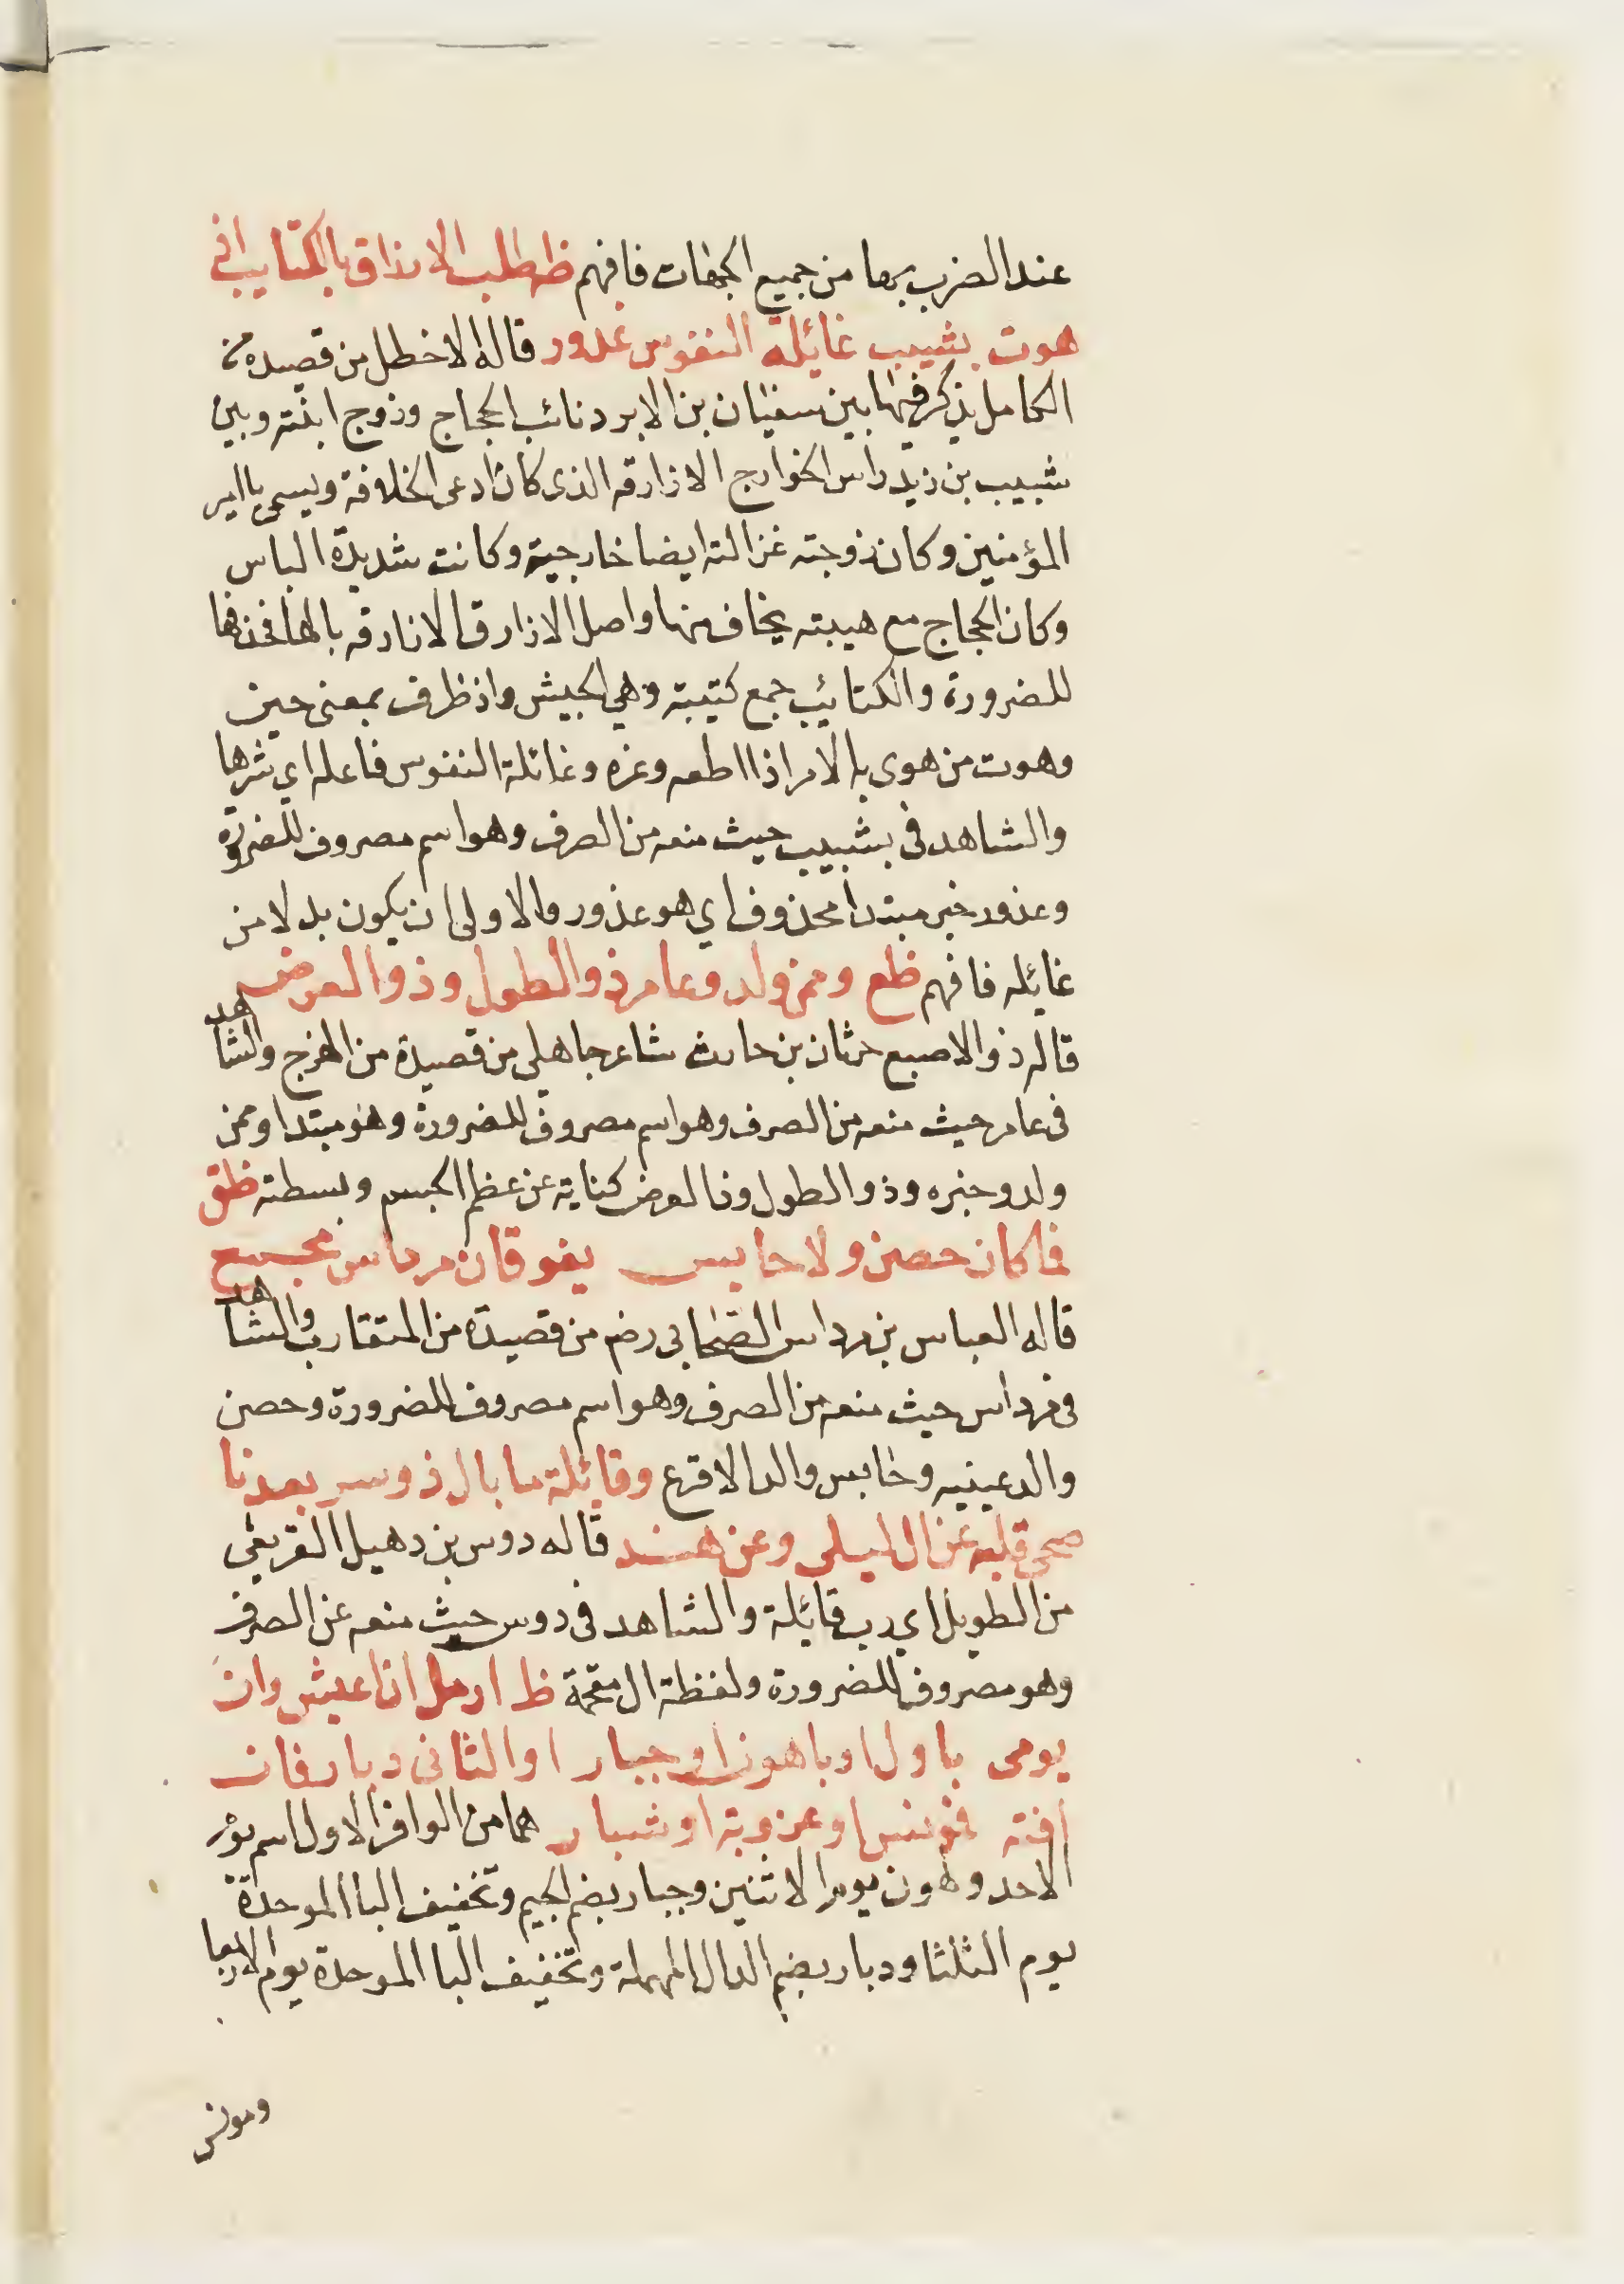 عند الضرب بها من جميع الجهات فافهم ظه طلب الازارق بالكتايب اذ
هوت بشبيب غائلة النفوس غدور قاله الاخطل من قصيدة من
الكامل يذكر فيها بين سفيان بن الابرد نائب الحجاج وزوج ابنته وبين
شبيب بن زيد راس الخوارج الازارقه الذى كان ادعى الخلافة ويسمى باامير
المؤمنين وكان زوجته غزالته ايضا خارجية وكانت شديدة الباس
وكان الحجاج مع هيبته يخاف منها واصل الازارق الازارقه بالها فحذفها
للضرورة والكتائب جمع كتيبة وهي الجيش واذ ظرف بمعنى حين
وهوت من هوى به الامر اذا اطعه وغره وغائلة النفوس فاعله اي شرها
والشاهد في بشبيب حيث منعه من الصرف وهو اسم مصروف للضرورة
وغدور خبر مبتدا محذوف اي هو غدور والاولى ان يكون بدلا من
غائله فافهم ظع وممن ولدو عامر ذو الطول وذو العرض
قاله ذو الاصبع حرثان بن حارث شاعر جاهلي من قصيدة من الهزج والشاهد
فى عامر حيث منعه من الصرف وهو اسم مصروف للضرورة وهو مبتدا وممن
ولدو خبره وذو الطول وذا العرض كناية عن عظم الجسم وبسطته ظق
فما كان حصن ولا حابس يفوقان مرداس مجمع
قاله العباس بن مرداس الصحابى رضه من قصيدة من المتقارب والشاهد
فى مرداس حيث منعه من الصرف وهو اسم مصروف للضرورة وحصن
والد عيينه وحابس والد الاقرع وقائلة ما بال ذوسر بعدنا
صحى قلبه عن ال ليلى وعن هند قاله دوس بن دهبل القريعي
من الطويل اي رب قائلة والشاهد فى دوس حيث منعه عن الصرف
وهو مصروف للضرورة ولفظة ال مقحمة ظ ارمل ان اعيش وان
يومى باول او باهون او جبار او الثانى دبار فان
افته فمونس او عروبة او شيار هما من الوافر الاول اسم يوم
الاحد واهون يوم الاثنين وجبار بضم الجيم وتخفيف البا الموحدة
يوم الثلثا ودبار بضم الدال المهملة وتخفيف البا الموحدة يوم الاربعا
ومونس